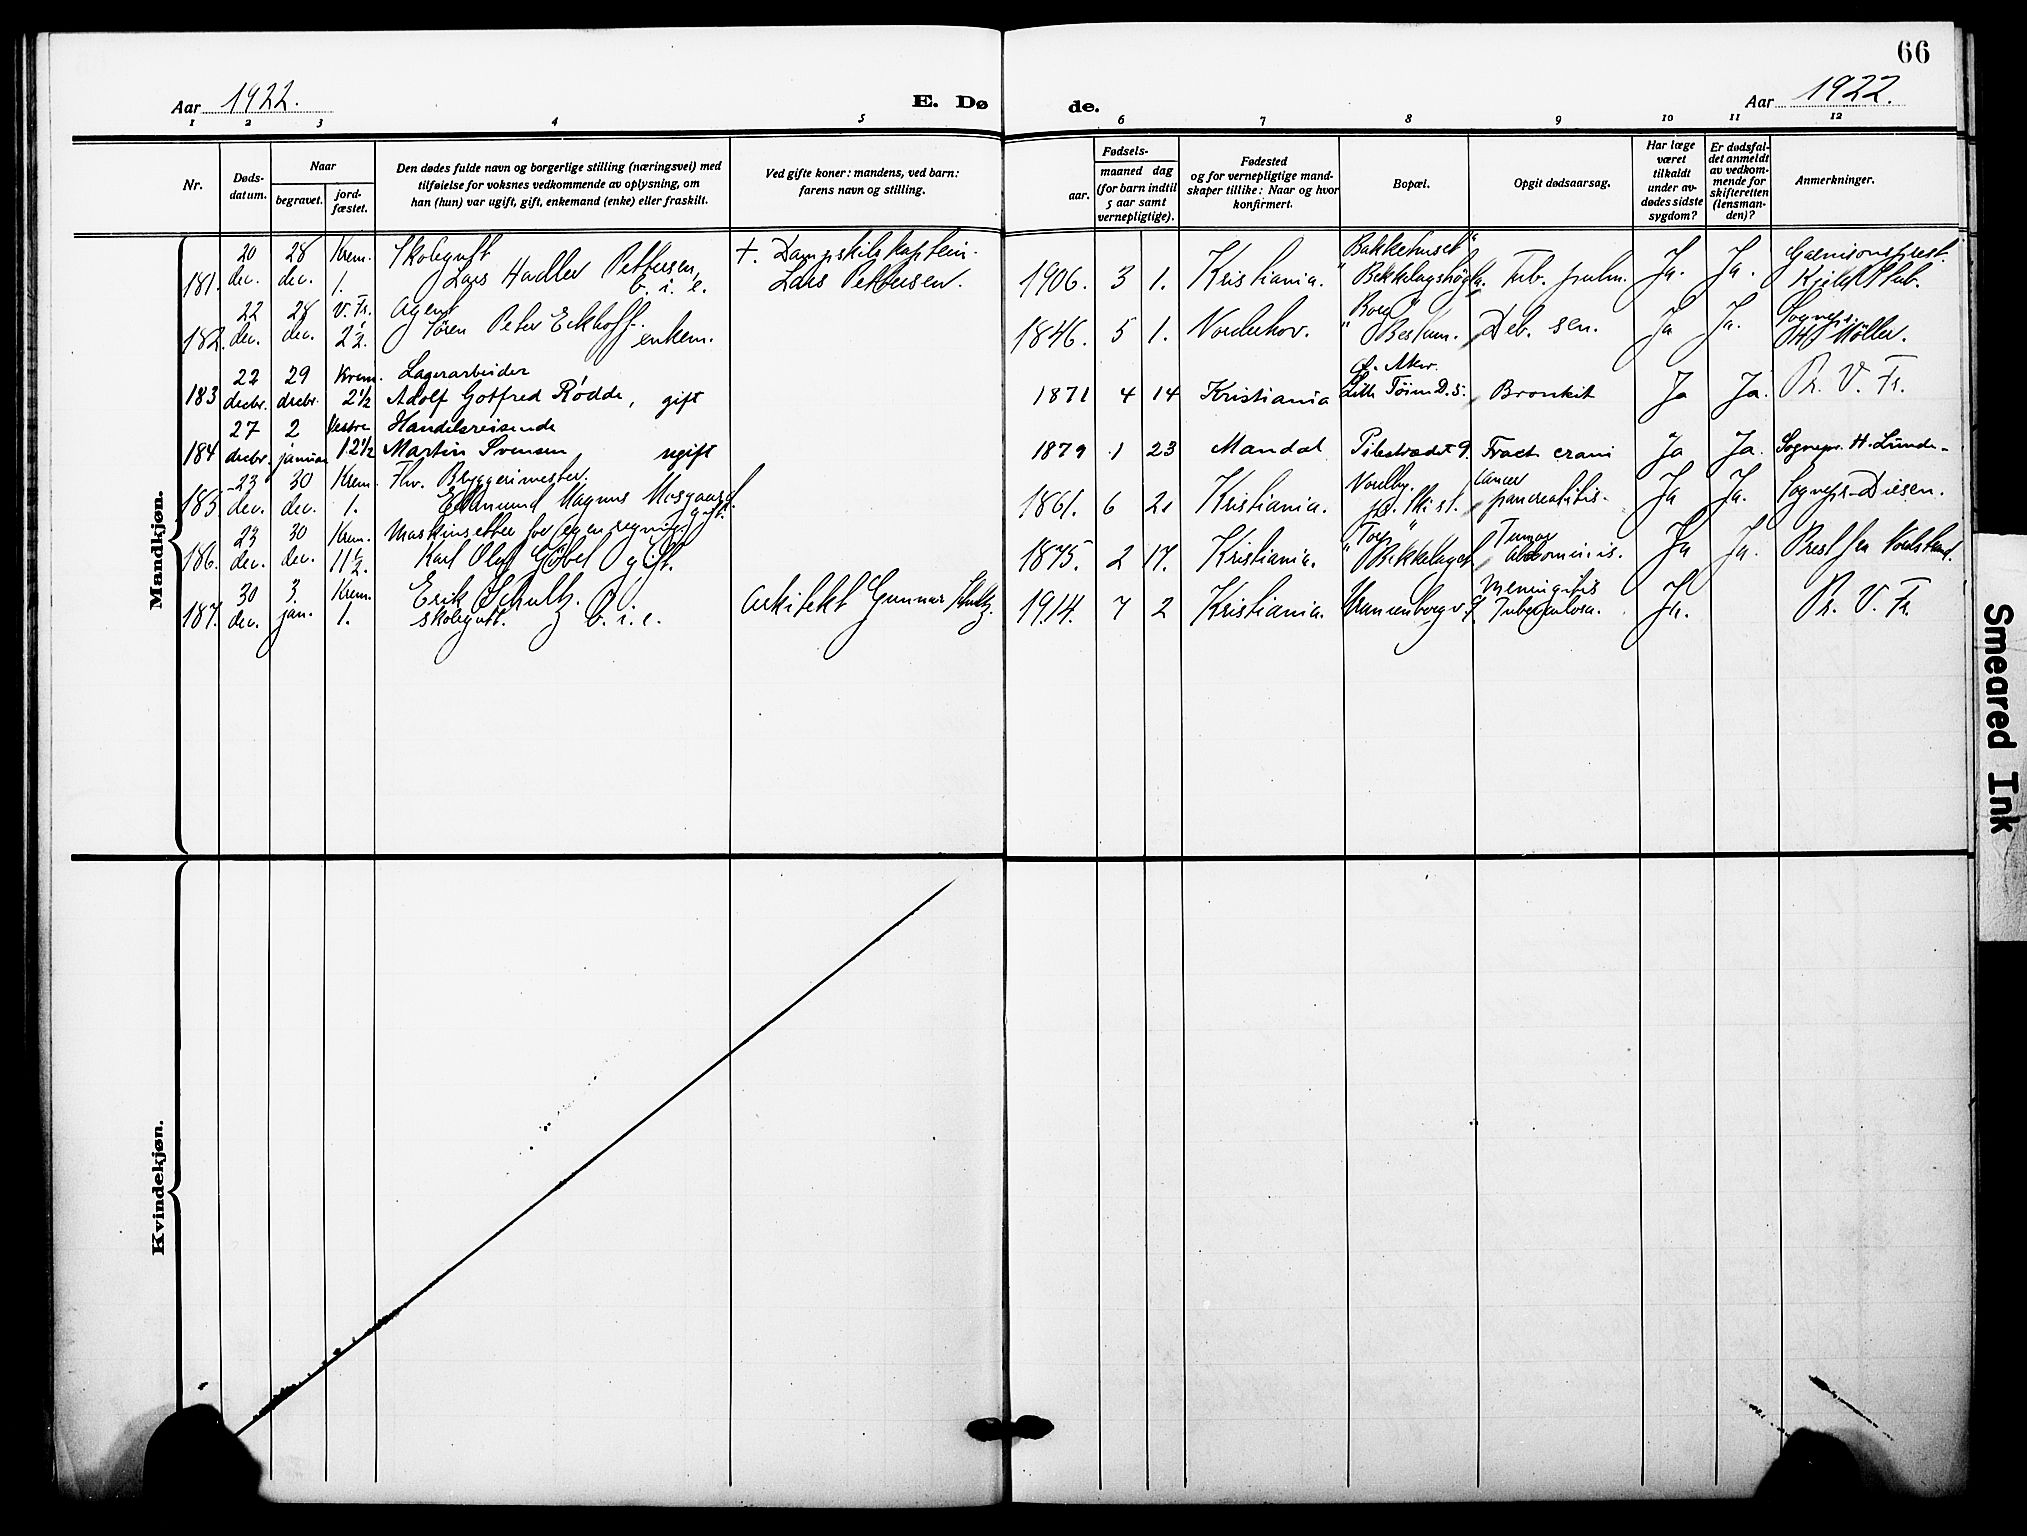 66
Aar 1922.
E. Dø de.
Aar 1922.
1 2 3 4 5 6 7 8 9 10 11 12
Nr.
Døds-
datum.
Naar
begravet.
jord-
fæstet.
Den dødes fulde navn og borgerlige stilling (næringsvei) med
tilføielse for voksnes vedkommende av oplysning, om
han (hun) var ugift, gift, enkemand (enke) eller fraskilt.
Ved gifte koner: mandens, ved barn:
farens navn og stilling.
Fødsels-
aar.
maaned dag
(for barn indtil
5 aar samt
vernepligtige).
Fødested
og for vernepligtige mand-
skaper tillike: Naar og hvor
konfirmert.
Bopæl.
Opgit dødsaarsag.
Har læge
været
tilkaldt
under av-
dødes sidste
sygdom?
Er dødsfal-
det anmeldt
av vedkom-
mende for
skifteretten
(lensman-
den)?
Anmerkninger.
Mandkjøn.
20 28 Krem. Skolegutt +. Dampskibskaptein Bakkehuset Garnisonsprest
181. dec. dec. 1. Lars Hadler Pettersen, b. i. e. Lars Pettersen. 1906. 3 1. Kristiania. Bekkelagshøgda. Tub. pulm. Ja. Ja. Kjeld Stub.
22 28 V. Fr. Agent Sognepr.
182. dec. dec. 2½. Søren Peter Eckhoff. enkem. 1846. 5 1. Norderhov. Bestum. Deb. sen. Ja Ja. Møller.
22 29 Krem. Lagerarbeider Ø. Aker.
183 decbr. decbr. 2½ Adolf Gotfred Rødde, gift 1871 4 14 Kristiania Lille Tøien D. 5. Bronkit Ja Ja. Pr. V. Fr.
27 2 Vestre Handelsreisende
184 decbr. januar 12½ Martin Svensen ugift 1879 1 23 Mandal Pilestrædet 9. Fract. crani Ja Ja. Sognepr. H. Lunde
23 30 Krem. Fhv. Bryggerimester. Nordby. Cancer
185 dec. dec. 1. Edmund Magnus Mosgaard. gift. 1861. 6 21 Kristiania. pr. Ski st. pancreatitis. Ja Ja. Sognepr. Diesen.
23 30 Krem. Maskinsetter for egen regning Tumor
186. dec. dec. 11½. Karl Olaf Gøbel gift. 1875. 2 17. Kristiania. Bekkelaget abdominis. Ja Ja. Prest
30 3. Krem. Erik Schultz. Meningitis
187. dec. jan. 1. Skolegutt. b. i. e. Arkitekt Gunnar Schultz. 1914. 7 2 Kristiania. Uranienborgv. 9. Tuberculosa. Ja. Pr. V. Fr.
Kvindekjøn.
Smeared Ink